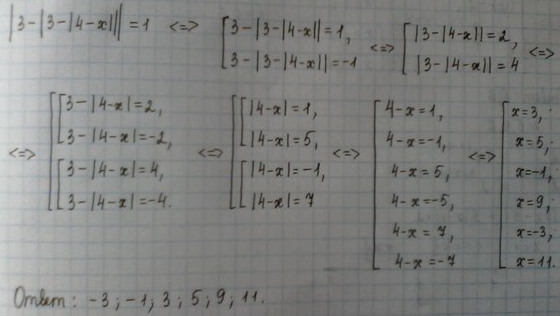 |3-|3-|4-x||| = 1 <=> [ 3-|3-|4-x|| = 1, 3-|3-|4-x|| = -1 <=> [ |3-|4-x|| = 2, |3-|4-x|| = 4 <=>
<=> [ [ 3-|4-x| = 2, 3-|4-x| = -2, [ 3-|4-x| = 4, 3-|4-x| = -4. <=> [ [ |4-x| = 1, |4-x| = 5, [ |4-x| = -1, |4-x| = 7 <=> [ 4-x = 1, 4-x = -1, 4-x = 5, 4-x = -5, 4-x = 7, 4-x = -7 <=> [ x = 3, x = 5, x = -1, x = 9, x = -3, x = 11.
Ответ: -3; -1; 3; 5; 9; 11.